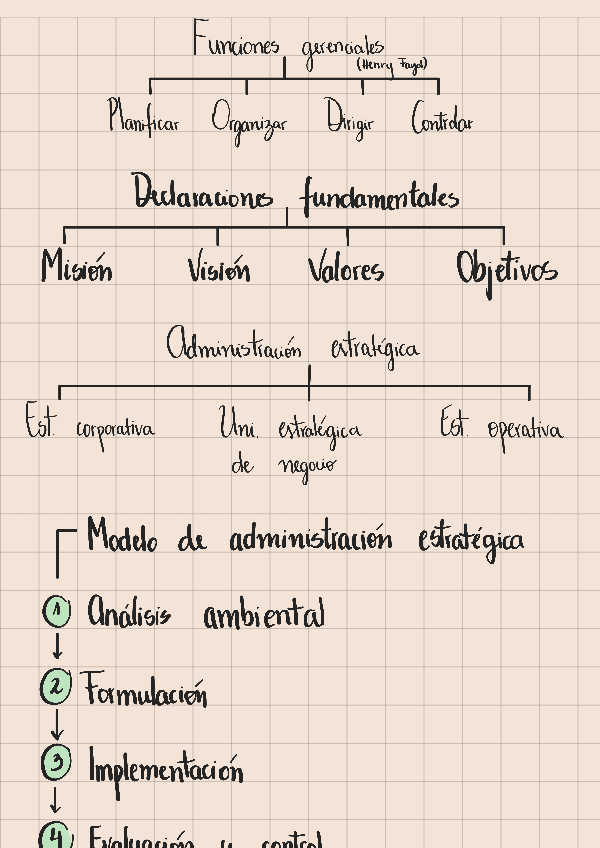 Funciones gerenciales
(Henry Fayol)
Planificar Organizar Dirigir Controlar
Declaraciones fundamentales
Misión Visión Valores Objetivos
Administración estratégica
Est. corporativa Uni. estratégica Est. operativa
de negocio
Modelo de administración estratégica
1 Análisis ambiental
2 Formulación
3 Implementación
4 Evaluación y control